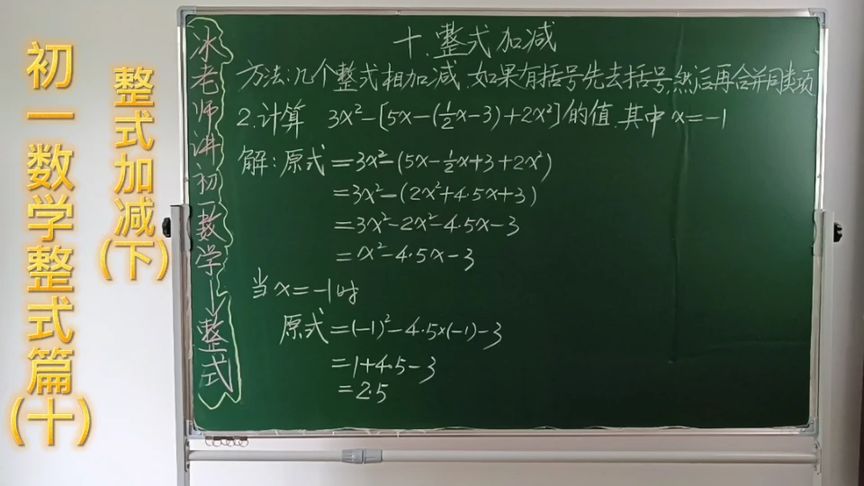 初一数学整式篇(十)
整式加减(下)
冰老师讲初一数学→整式
十.整式加减
方法:几个整式相加减.如果有括号先去括号,然后再合并同类项
2.计算 3x²-[5x-(½x-3)+2x²]的值.其中x=-1
解:原式=3x²-(5x-½x+3+2x²)
=3x²-(2x²+4.5x+3)
=3x²-2x²-4.5x-3
=x²-4.5x-3
当x=-1时
原式=(-1)²-4.5×(-1)-3
=1+4.5-3
=2.5